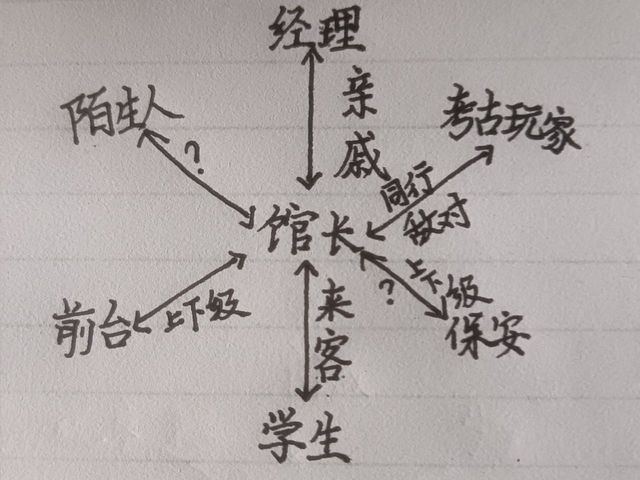 经理
亲戚
陌生人
?
考古玩家
同行
敌对
馆长
前台
上下级
来客
?
上下级
保安
学生